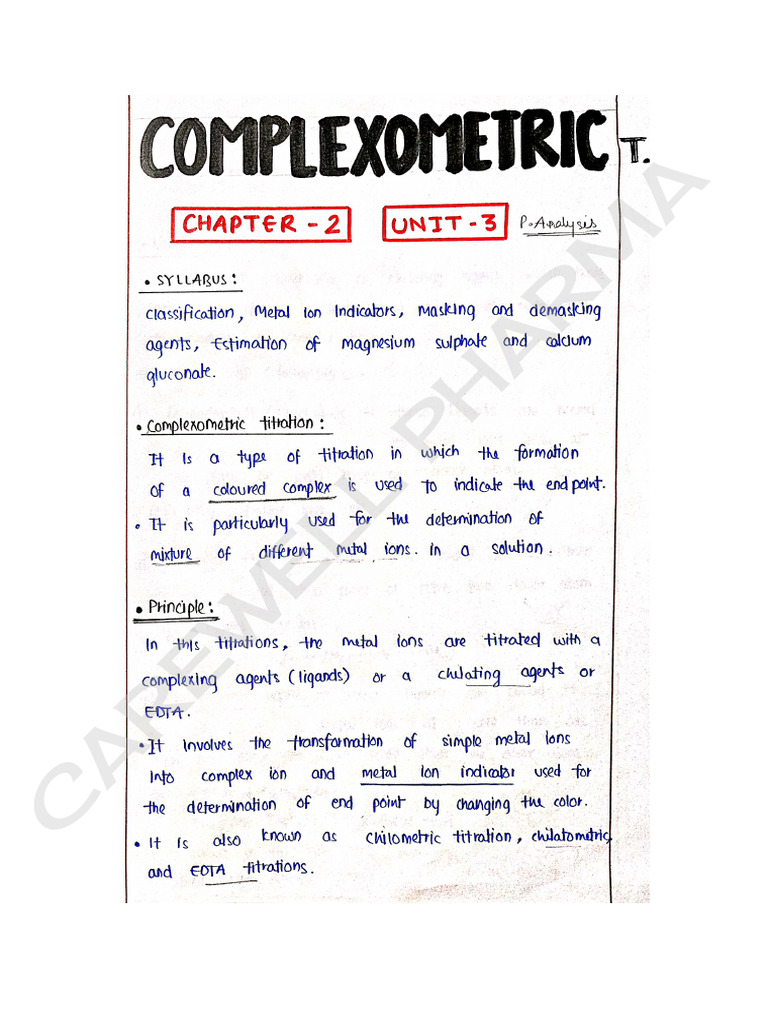 COMPLEXOMETRIC T.
CHAPTER - 2 UNIT - 3 P. Analysis
• SYLLABUS :
Classification, Metal Ion Indicators, Masking and demasking
agents, Estimation of magnesium sulphate and calcium
gluconate.
• Complexometric titration :
It is a type of titration in which the formation
of a coloured complex is used to indicate the end point.
• It is particularly used for the determination of
mixture of different metal ions. in a solution.
• Principle :
In this titrations, the metal ions are titrated with a
complexing agents (ligands) or a chilating agents or
EDTA.
• It involves the transformation of simple metal ions
into complex ion and metal ion indicator used for
the determination of end point by changing the color.
• It is also known as chilometric titration, chilatometric,
and EDTA titrations.
CAREWELL PHARMA